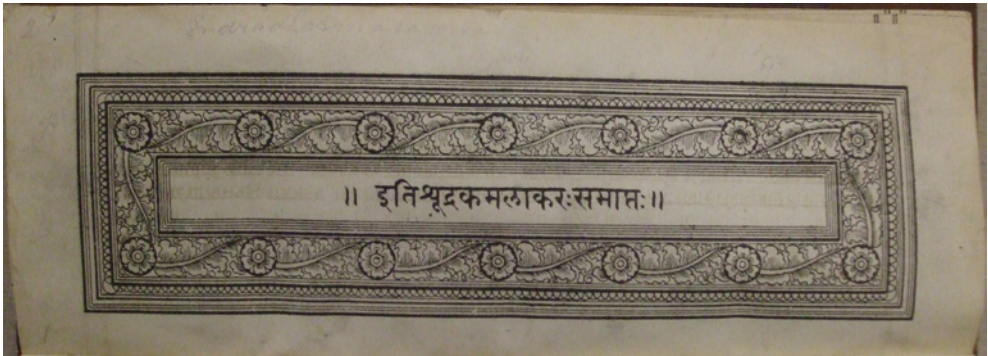 ॥ इतिशूद्रकमलाकरःसमाप्तः॥